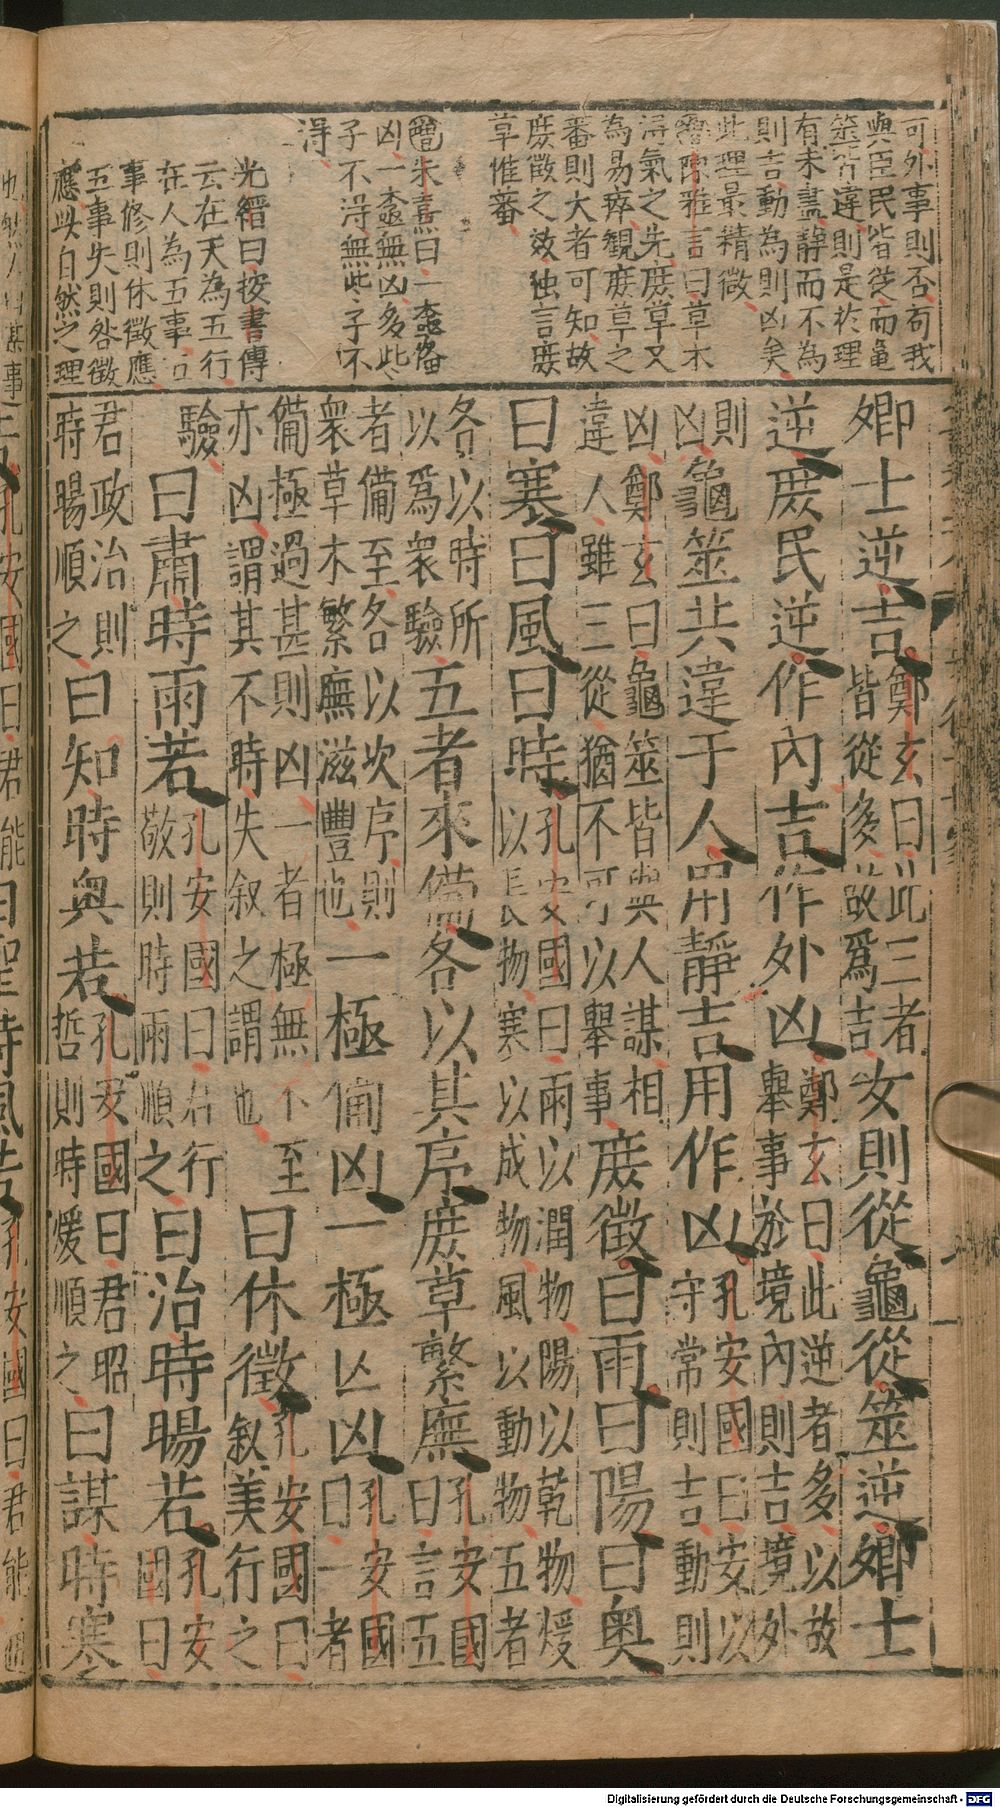 可外事則否苟我
與臣民皆從而龜
筮皆違則是於理
有未盡靜而不為
則吉動為則凶矣
此理最精微
陳雅言曰草木
得氣之先庶草又
為易瘁觀庶草之
蕃則大者可知故
庶徵之效独言庶
草惟蕃
朱熹曰一極備
凶一極無凶多此
子不得無此子不
得
光縉曰按書傳
云在天為五行
在人為五事五
事修則休徵應
五事失則咎徵
應此自然之理
卿士逆吉鄭玄曰此三者皆從多故爲吉女則從龜從筮逆卿士
逆庶民逆作內吉作外凶鄭玄曰此逆者多以故舉事於境內則吉境外
則凶龜筮共違于人用靜吉用作凶孔安國曰安以守常則吉動則
凶鄭玄曰龜筮皆與人謀相違人雖三從猶不可以舉事庶徵曰雨曰陽曰奧
曰寒曰風曰時孔安國曰雨以潤物陽以乾物煖以長物寒以成物風以動物五者
各以時所以爲衆驗五者來備各以其序庶草繁廡孔安國曰言五
者備至各以次序則衆草木繁廡滋豐也一極備凶一極亡凶孔安國曰一者
備極過甚則凶一者極無不至亦凶謂其不時失叙之謂也曰休徵孔安國曰叙美行之
驗曰肅時雨若孔安國曰君行敬則時雨順之曰治時暘若孔安國曰
君政治則時暘順之曰知時奧若孔安國曰君昭哲則時煖順之曰謀時寒
孔安國曰君能曰聖時風若孔安國曰君能
Digitalisierung gefördert durch die Deutsche Forschungsgemeinschaft - DFG